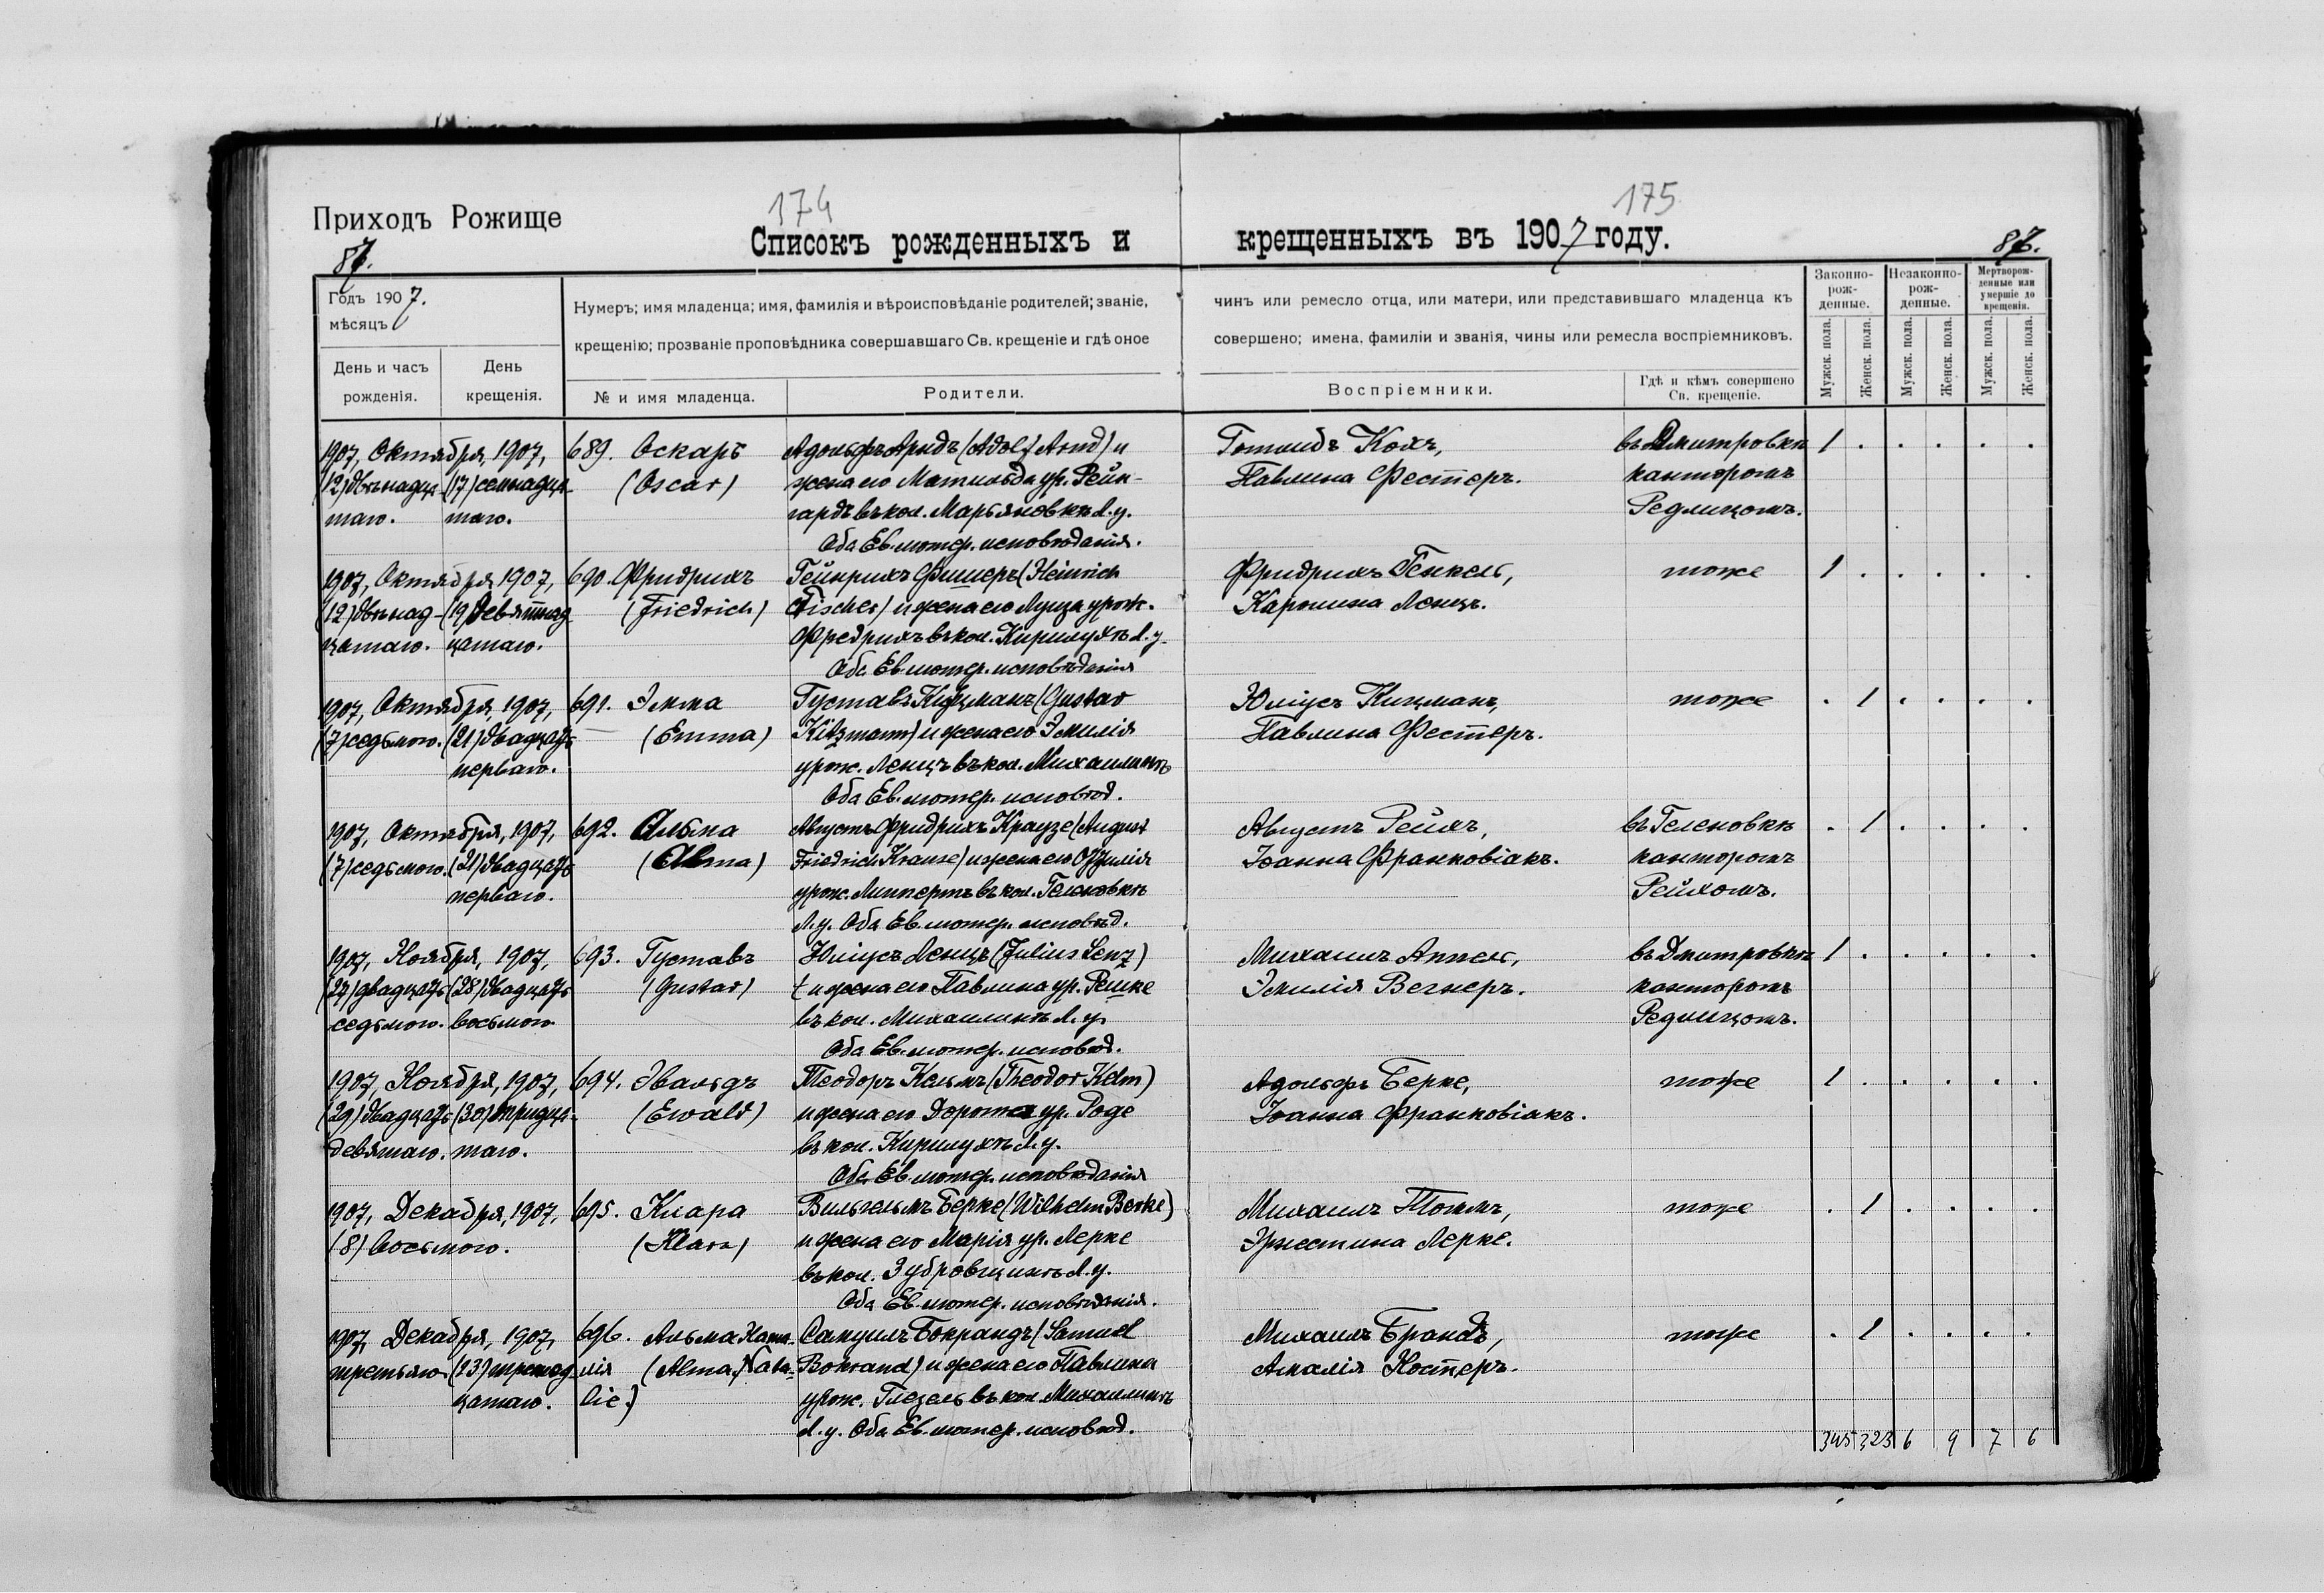 174
175
Приходъ Рожище
Списокъ рожденныхъ и
крещенныхъ въ 1907 году.
87.
87.
Годъ 1907.
мѣсяцъ
День и часъ
рожденія.
День
крещенія.
Нумеръ; имя младенца; имя, фамилія и вѣроисповѣданіе родителей; званіе,
крещенію; прозваніе проповѣдника совершавшаго Св. крещеніе и гдѣ оное
№ и имя младенца.
Родители.
чинъ или ремесло отца, или матери, или представившаго младенца къ
совершено; имена, фамиліи и званія, чины или ремесла воспріемниковъ.
Воспріемники.
Гдѣ и кѣмъ совершено
Св. крещеніе.
Законно-
рож-
денные.
Незаконно-
рож-
денные.
Мертворож-
денные или
умершіе до
крещенія.
Мужск. пола.
Женск. пола.
Мужск. пола.
Женск. пола.
Мужск. пола.
Женск. пола.
1907, Октября, 1907, 689. Оскаръ Адольфъ Арндъ (Adolf Arnd) и Готлибъ Кохъ, въ Дмитровкѣ 1 . . . . .
(12) двѣнадца- (17) семнадца- (Oscar) жена его Матильда ур. Рейн- Павлина Фестеръ. канторомъ
таго. таго. гардъ въ кол. Марьяновкѣ Л. у. Редлицомъ.
Оба Ев. лютер. исповѣданія.
1907, Октября 1907, 690. Фридрихъ Гейнрихъ Фишеръ (Heinrich Фридрихъ Генкель, тоже 1 . . . . .
(12) двѣнад- (19) девятнад- (Friedrich) Fischer) и жена его Луиза урож. Каролина Ленцъ.
цатаго. цатаго. Фредрихъ въ кол. Кирилухѣ Л. у.
Оба Ев. лютер. исповѣданія
1907, Октября, 1907, 691. Эмма Густавъ Кицманъ (Gustav Юліусъ Кицманъ, тоже . 1 . . . .
(7) седьмого. (21) двадцать (Emma) Kitzmann) и жена его Эмилія Павлина Фестеръ.
перваго. урож. Ленцъ въ кол. Михаилинѣ
Оба Ев. лютер. исповѣд.
1907, Октября, 1907, 692. Альма Августъ Фридрихъ Краузе (August Августъ Рейхъ, въ Геленовкѣ . 1 . . . .
(7) седьмого. (21) двадцать (Alma) Friedrich Krause) и жена его Оттилія Іоанна Франковіакъ. канторомъ
перваго. урож. Липпертъ въ кол. Геленовкѣ Рейхомъ.
Л. у. Оба Ев. лютер. исповѣд.
1907, Ноября, 1907, 693. Густавъ Юліусъ Ленцъ (Julius Lenz) Михаилъ Аппель, въ Дмитровкѣ 1 . . . . .
(27) двадцать (28) двадцать (Gustav) и жена его Павлина ур. Решке Эмилія Вегнеръ. канторомъ
седьмого. восьмого въ кол. Михаилинѣ Л. у. Редлицомъ.
Оба Ев. лютер. исповѣд.
1907, Ноября, 1907, 694. Эвальдъ Теодоръ Кельмъ (Theodor Kelm) Адольфъ Берке, тоже 1 . . . . .
(29) двадцать (30) тридца- (Ewald) и жена его Доротея ур. Роде Іоанна Франковіакъ.
девятаго. таго. въ кол. Кирилухѣ Л. у.
Оба Ев. лютер. исповѣданія
1907, Декабря, 1907, 695. Клара Вильгельмъ Берке (Wilhelm Berke) Михаилъ тоже . 1 . . . .
(8) восьмого. (Klara) и жена его Марія ур. Лерке Эрнестина Лерке.
въ кол. Зубровщинѣ Л. у.
Оба Ев. лютер. исповѣданія.
1907, Декабря, 1907, 696. Альма Ната- Самуилъ Бокрандъ (Samuel Михаилъ Брандъ, тоже . 1 . . . .
третьяго (13) тринад- лія (Alma Nata- Bokrand) и жена его Павлина Амалія Костеръ.
цатаго. lie.) урож. Глезель въ кол. Михаилинѣ
Л. у. Оба Ев. лютер. исповѣд.
345 323 6 9 7 6